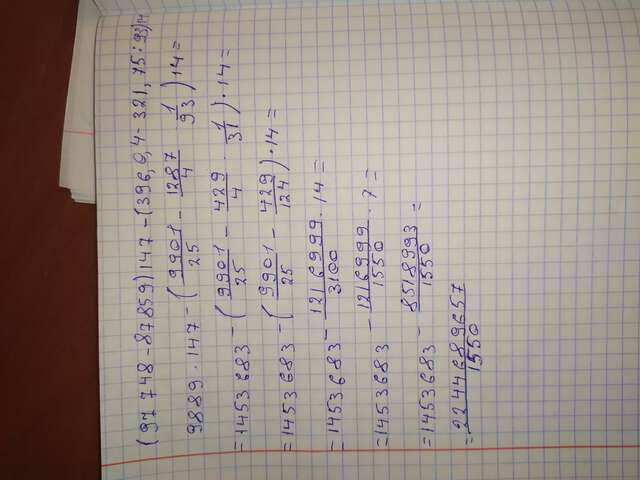 (97748-87859)147-(396,0,4-321,75:93)14
9889·147-(9901/25-1287/4·1/93)14=
=1453683-(9901/25-429/4·1/31)·14=
=1453683-(9901/25-429/124)·14=
=1453683-1216999/3100·14=
=1453683-1216999/1550·7=
=1453683-8518993/1550=
=2244689657/1550